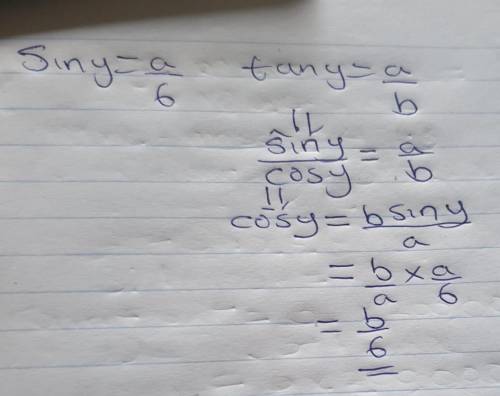 siny = a/6    tany = a/b
siny/cosy = a/b
cosy = b siny/a
= b/a × a/6
= b/6